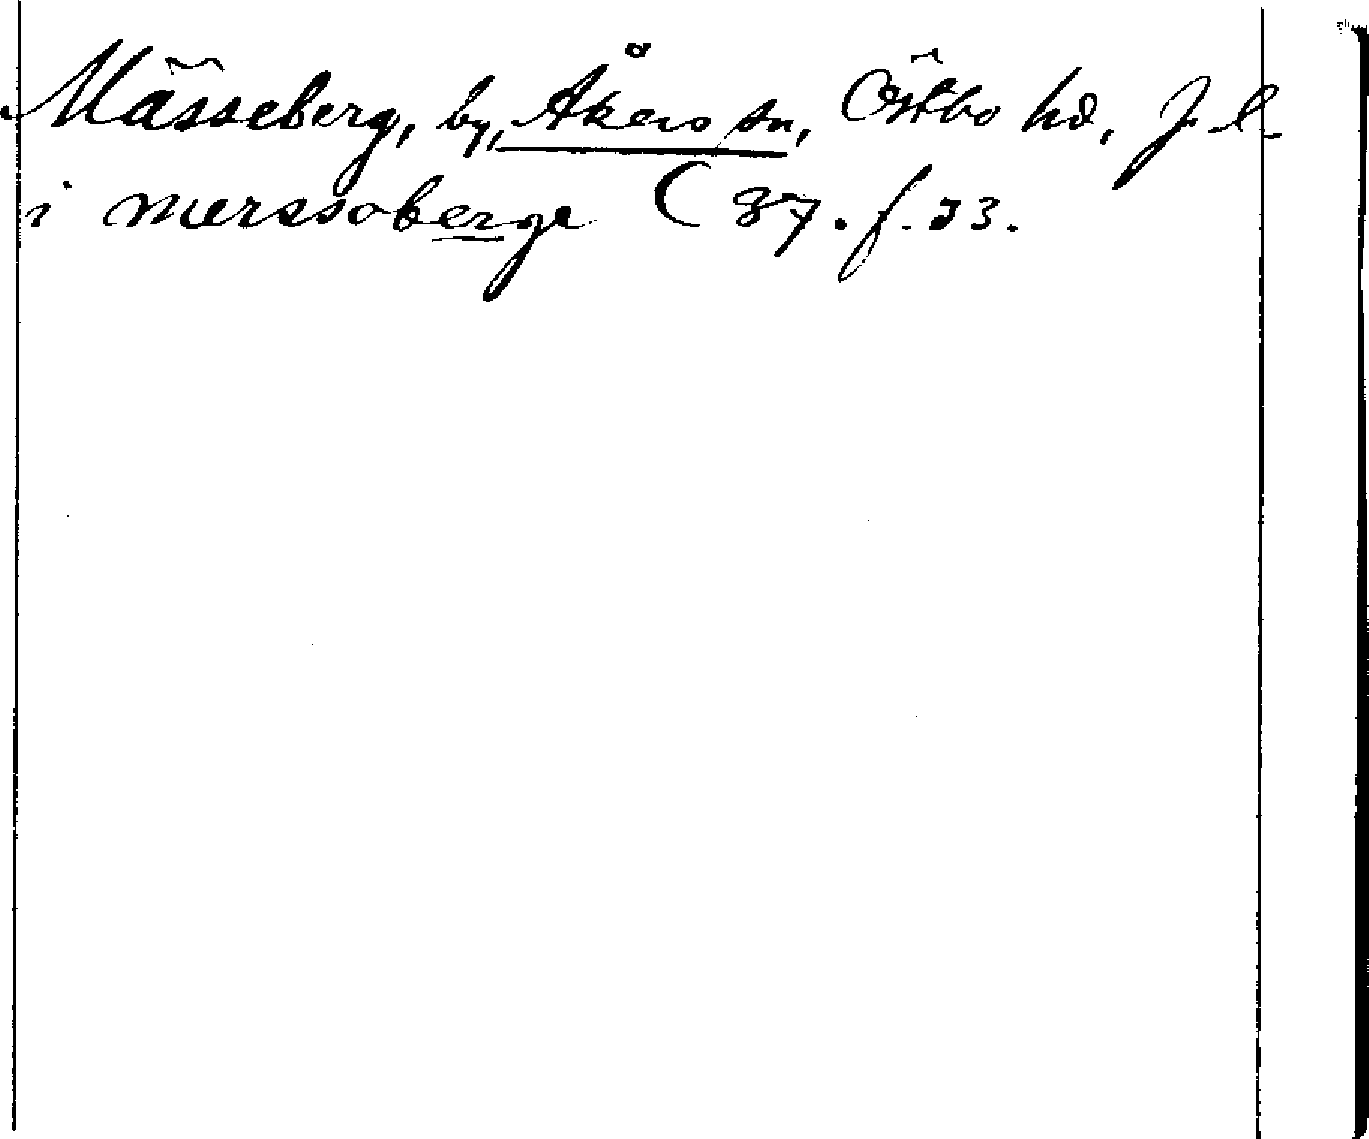 Mässeberg, by, Åkers sn, Östbo hd, J. l.
i merssoberge C 37. f. 23.